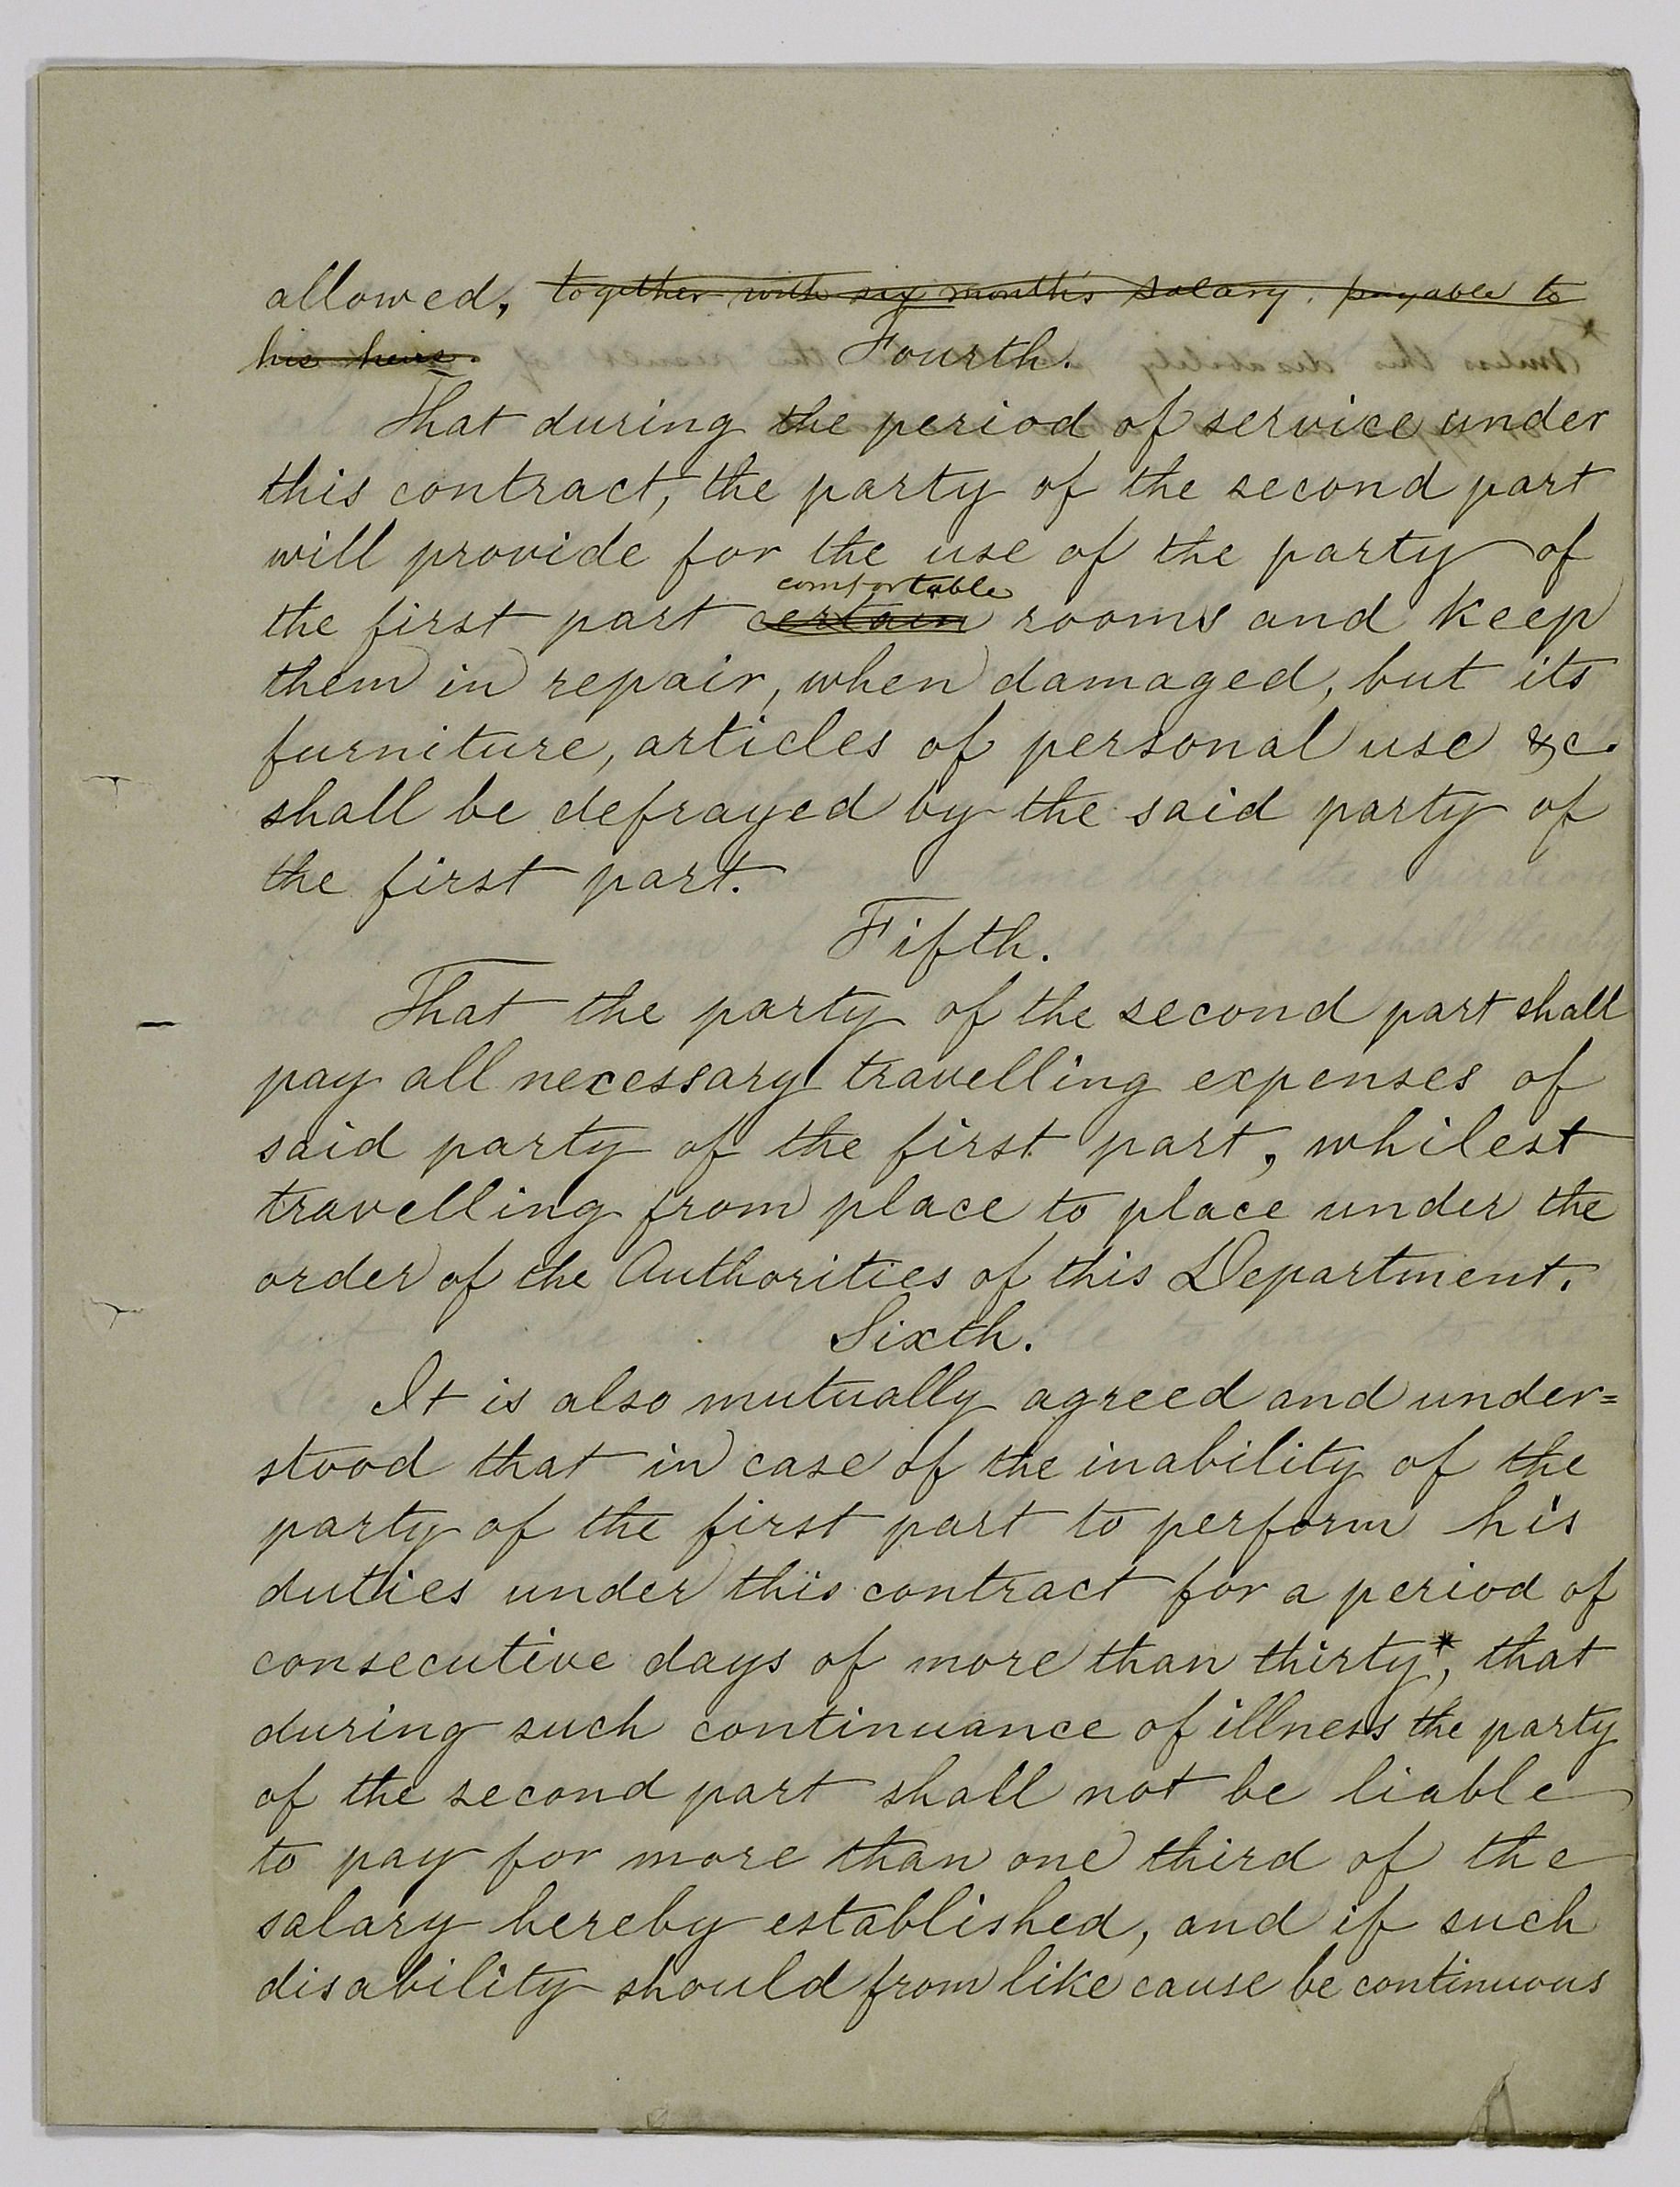 allowed, together with six month's salary, payable to
his heirs.
Fourth.
That during the period of service under
this contract, the party of the second part
will provide for the use of the party of
comfortable
the first part certain rooms and keep
them in repair, when damaged, but its
furniture, articles of personal use &c.
shall be defrayed by the said party of
the first part.
Fifth.
That the party of the second part shall
pay all necessary travelling expenses of
said party of the first part, whilest
travelling from place to place under the
order of the Authorities of this Department.
Sixth.
It is also mutually agreed and under=
stood that in case of the inability of the
party of the first part to perform his
duties under this contract for a period of
consecutive days of more than thirty*, that
during such continuance of illness the party
of the second part shall not be liable
to pay for more than one third of the
salary hereby established, and if such
disability should from like cause be continuous